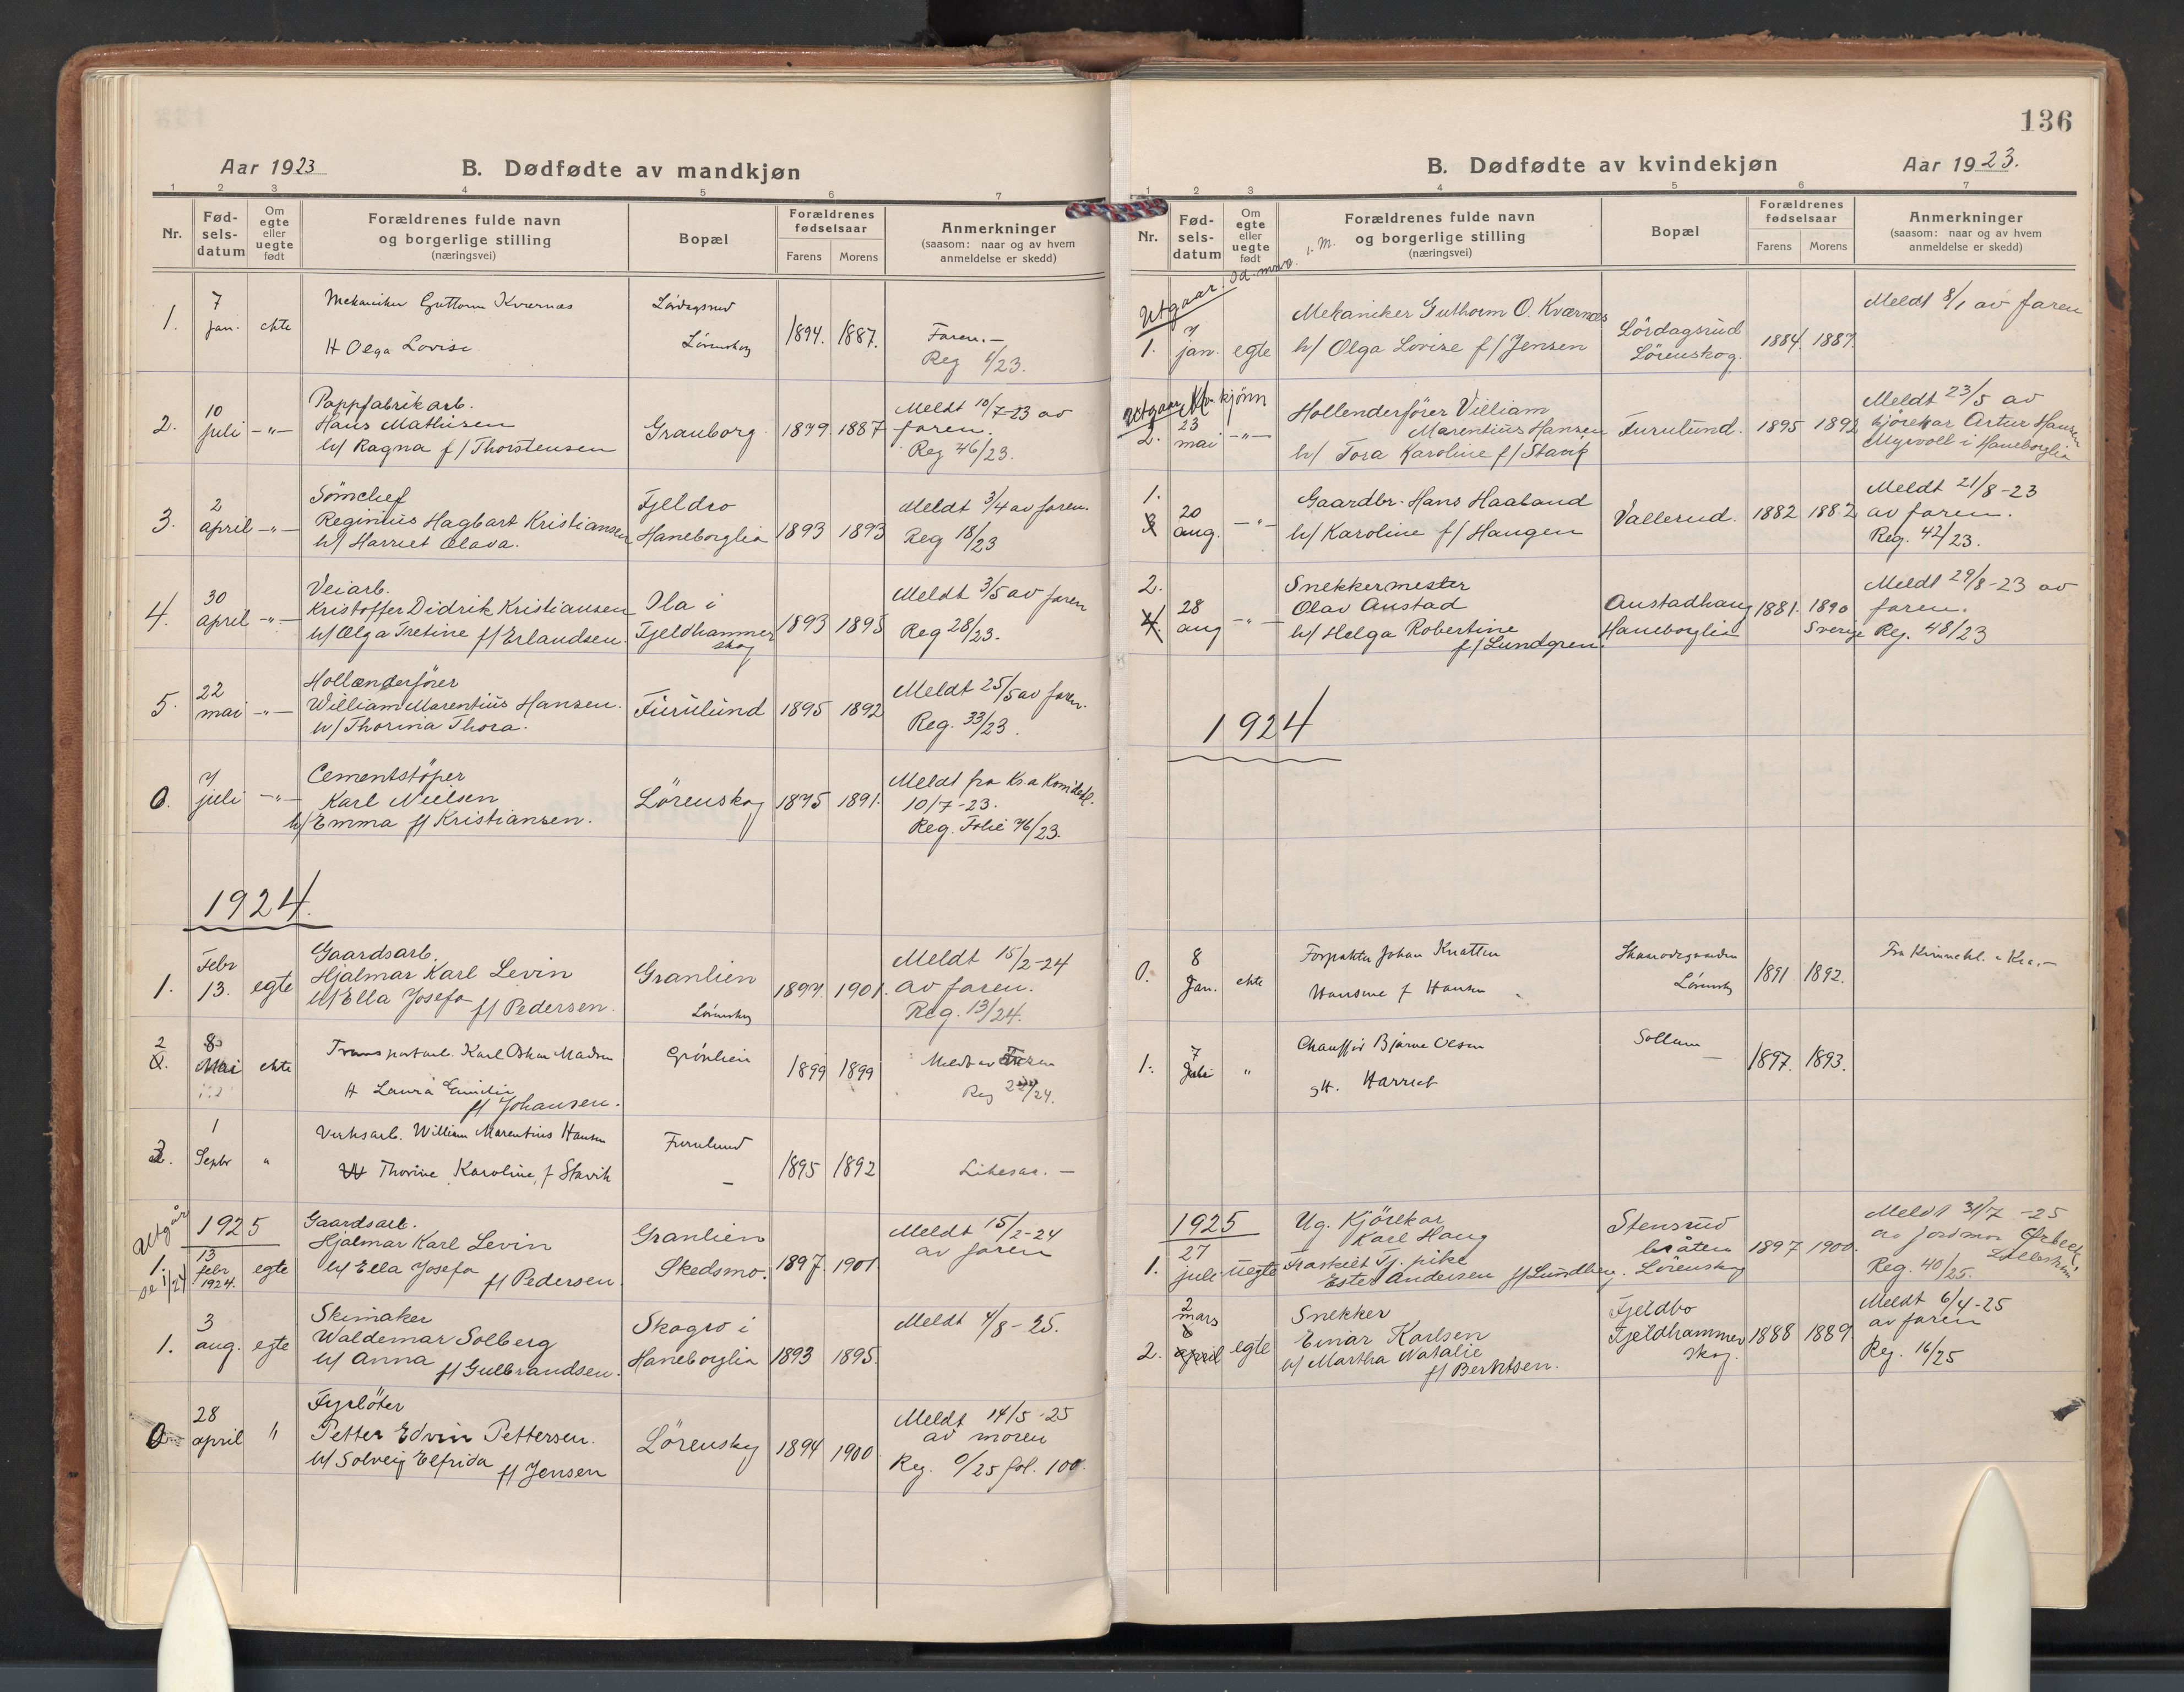 Aar 1923
B. Dødfødte av mandkjøn
1 2 3 4 5 6 7
Nr.
Fød-
sels-
datum
Om
egte
eller
uegte
født
Forældrenes fulde navn
og borgerlige stilling
(næringsvei)
Bopæl
Forældrenes
fødselsaar
Farens Morens
Anmerkninger
(saasom: naar og av hvem
anmeldelse er skedd)
1. 7 jan. ekte
Mekaniker Guttorm Kvernæs
H Olga Lovise
Lördagsrud
Lörenskog
1894. 1887.
Faren. —
Reg 6/23.
2. 10 juli —"—
Pappfabrikarb.
Hans Mathisen
h/ Ragna f/ Thorstensen
Granborg.
1879. 1887
Meldt 10/7-23 av
faren.
Reg 46/23.
3. 2 april —"—
Sömchef
Reginius Hagbart Kristiansen
h/ Harriet Olava.
Fjeldro
Haneborglia
1893 1893
Meldt 3/4 av faren.
Reg 18/23
4. 30 april —"—
Veiarb.
Kristoffer Didrik Kristiansen
h/ Olga Tretine f/ Erlandsen.
Ola i
Fjeldhammer
skog
1893 1895
Meldt 3/5 av faren
Reg 28/23.
5. 22 mai —"—
Hollænderförer
William Marentius Hansen.
h/ Thorina Thora.
Furulund
1895 1892
Meldt 25/5 av faren.
Reg. 33/23.
0. 7 juli —"—
Cementstöper
Karl Nielsen
h/ Emma f/ Kristiansen.
Lörenskog
1895 1891.
Meldt fra Kr.a
10/7-23.
Reg. Folie 76/23.
1924.
1. Febr 13. egte
Gaardsarb.
Hjalmar Karl Levin
h/ Ella Josefa f/ Pedersen.
Granlien
Lörenskog
1897. 1901.
Meldt 15/2-24
av faren.
Reg. 13/24.
2 8 Mai ekte
Transportarb. Karl Oskar Madsen
H Laura Emilie
f/ Johansen.
Grönlien
1899 1899
Meldt av Faren
Reg 22/24.
3. 1 Septr "
Verksarb. William Marentius Hansen
H Thorine Karoline, f Stavik
Furulund
—
1895 1892
Likesaa. —
Utgår
1925
1. 13 febr 1924. egte
se 1/24
Gaardsarb.
Hjalmar Karl Levin
h/ Ella Josefa f/ Pedersen
Granlien
Skedsmo.
1897. 1901
Meldt 15/2-24
av faren
1. 3 aug. egte
Skimaker
Waldemar Solberg
h/ Anna f/ Gulbrandsen.
Skogro i
Haneborglia
1893 1895.
Meldt 4/8-25.
0 28 april "
Fyrböter
Petter Edvin Pettersen.
h/ Solveig Elfrida f/ Jensen
Lörenskog
1894 1900.
Meldt 14/5-25
av moren
Reg. 0/25 fol. 100.
136
B. Dødfødte av kvindekjøn
Aar 1923.
1 2 3 4 5 6 7
Nr.
Fød-
sels-
datum
Om
egte
eller
uegte
født
Forældrenes fulde navn
og borgerlige stilling
(næringsvei)
Bopæl
Forældrenes
fødselsaar
Farens Morens
Anmerkninger
(saasom: naar og av hvem
anmeldelse er skedd)
Utgaar.
1. 7 jan. egte
Mekaniker Guthorm O. Kværnæs
h/ Olga Lovise f/ Jensen
Lördagsrud
Lörenskog.
1884. 1887.
Meldt 8/1 av faren
Utgaar kjönn
2. 23 mai —"—
Hollenderförer Villiam
Marentius Hansen
h/ Tora Karoline f/ Stavik
Furulund.
1895 1892
Meldt 23/5 av
kjörekar Artur Hansen
Myrvoll i Haneborglia
1.
3 20 aug. —"—
Gaardbr. Hans Haaland
h/ Karoline f/ Haugen
Vallerud.
1882 1882
Meldt 21/8-23
av faren.
Reg. 42/23.
2.
4. 28 aug —"—
Snekkermester
Olav Austad
h/ Helga Robertine
f/ Lundgren.
Austadhaug
Haneborglia
1881. 1890
Sverige
Meldt 29/8-23 av
faren.
Reg. 48/23
1924
0. 8 Jan. ekte
Forpakter Johan Knatten
Hansine f Hansen
Lörenskog
1891 1892.
1. 7 Juli "
Chaufför Bjarne Olsen
gH. Harriet
Sollum
—
1897. 1893.
1925
1. 27 juli uegte
Ug. Kjörekar
Karl Haug
Fraskilt Tj. pike
Ester Andersen f/ Lundberg.
Stensrud
bråten
Lörenskog
1897 1900.
Meldt 31/7-25
av jordmor Ørbeck,
Lilleström
Reg. 40/25.
2. 2 mars
6 april egte
Snekker
Einar Karlsen
h/ Martha Natalie
f/ Berntsen.
Fjeldbo
Fjeldhammer
skog.
1888 1889.
Meldt 6/4-25
av faren
Reg. 16/25